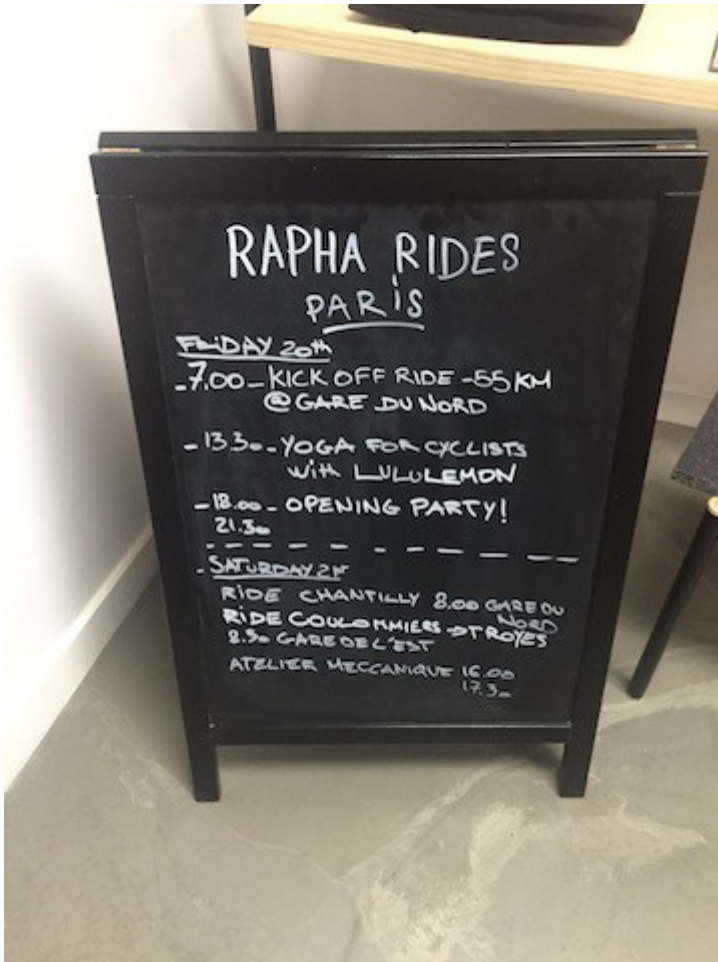 RAPHA RIDES
PARiS
FRiDAY 20th
- 7.00 - KICK OFF RIDE - 55 KM
@ GARE DU NORD
- 13.30 - YOGA FOR CYCLISTS
with LULULEMON
- 18.00 - OPENING PARTY!
21.30
- SATURDAY 21st
RIDE CHANTILLY 8.00 GARE DU
NORD
RIDE COULOMMIERS → TROYES
8.30 GARE DE L'EST
ATELIER MECCANIQUE 16.00
17.30